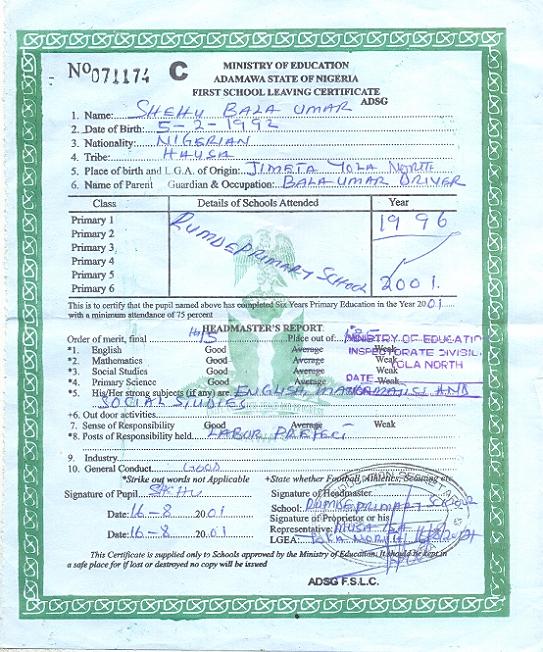 MINISTRY OF EDUCATION
No 071174 C
ADAMAWA STATE OF NIGERIA
FIRST SCHOOL LEAVING CERTIFICATE
ADSG
1. Name: SHEHU BALA UMAR
2. Date of Birth: 5-2-1992
3. Nationality: NIGERIAN
4. Tribe: HAUSA
5. Place of birth and L.G.A. of Origin: JIMETA YOLA NORTH
6. Name of Parent Guardian & Occupation: BALA UMAR DRIVER
Class Details of Schools Attended Year
Primary 1 1996
Primary 2 RUMDE PRIMARY SCHOOL
Primary 3
Primary 4
Primary 5
Primary 6 2001
This is to certify that the pupil named above has completed Six Years Primary Education in the Year 2001
with a minimum attendance of 75 percent
HEADMASTER'S REPORT
Order of merit, final Place out of
MINISTRY OF EDUCATION
INSPECTORATE DIVISI
YOLA NORTH
DATE
*1. English Good Average Weak
*2. Mathematics Good Average Weak
*3. Social Studies Good Average Weak
*4. Primary Science Good Average Weak
*5. His/Her strong subjects (if any) are ENGLISH, AND
SOCIAL STUDIES
+6. Out door activities
7. Sense of Responsibility Good Average Weak
*8. Posts of Responsibility held LABOR PREFECT
9. Industry
10. General Conduct GOOD
*Strike out words not Applicable +State whether Football, Athletics, Scouting etc
Signature of Pupil SHEHU Signature of Headmaster
School: RUMDE PRIMARY SCHOOL
Date: 16-8 2001 Signature of Proprietor or his
Representative: MUSA
Date: 16-8 2001 LGEA: YOLA NORTH
This Certificate is supplied only to Schools approved by the Ministry of Education. It should be kept in
a safe place for if lost or destroyed no copy will be issued
ADSG F.S.L.C.